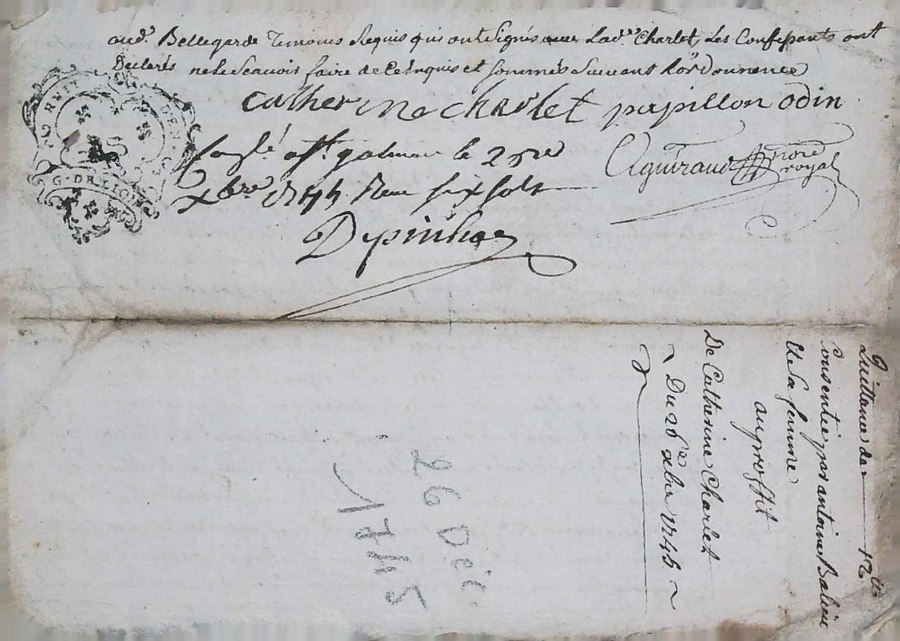 aud. Bellegarde Temoins Requis qui ont Signés avec Lad. Charlet Les Confessants ont
Declarés ne le Scavoir faire de ce Enquis et sommés Suivant Lordonnence
Catherine Charlet papillon odin
Aguiraud nore
royal
Conlé a St galmier le 2
Xbre 1745 Reçu six sols
Depinhac
G. DE LION
Quittance de 12ᵗᵗ
Consentie par antoine
Et Sa femme
au proffit
De Catherine Charlet
Du 26 xbre 1745
26 Déc
1745